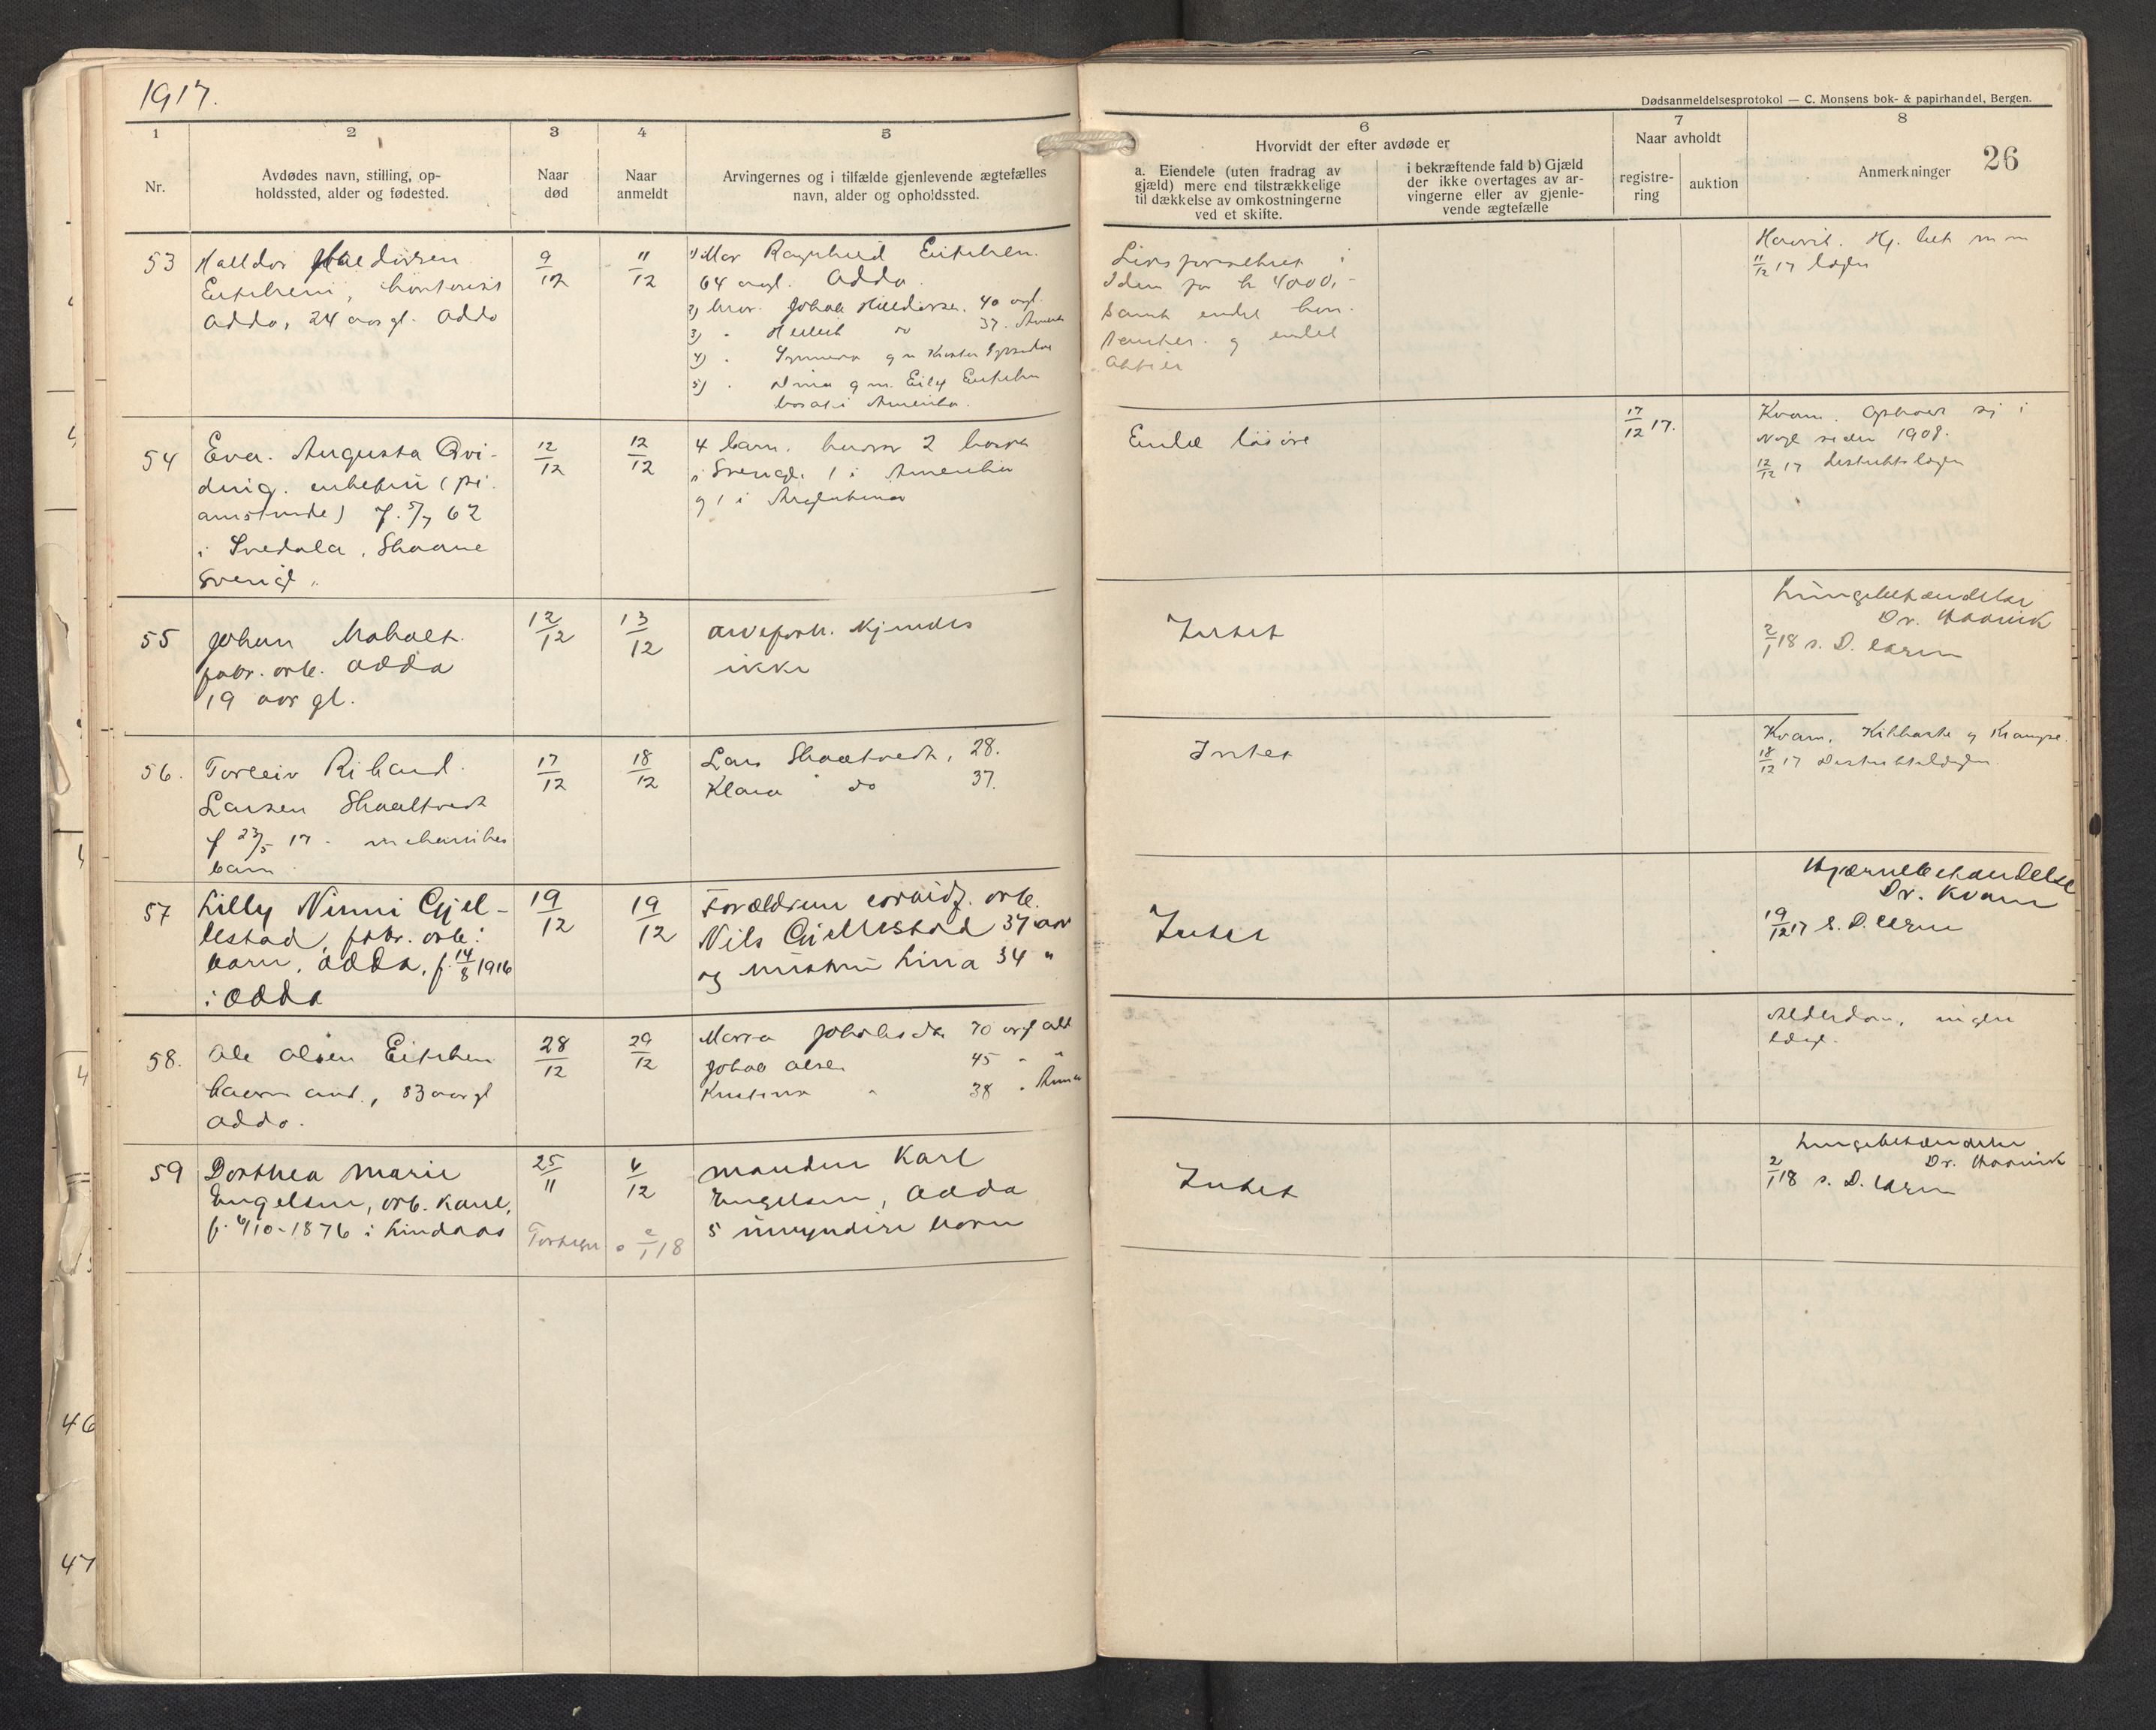 1917.
Dødsanmeldelsesprotokol — C. Monsens bok- & papirhandel, Bergen.
26
1
2
3
4
5
6
7
8
Nr.
Avdødes navn, stilling, op-
holdssted, alder og fødested.
Naar
død
Naar
anmeldt
Arvingernes og i tilfælde gjenlevende ægtefælles
navn, alder og opholdssted.
Hvorvidt der efter avdøde er
a. Eiendele (uten fradrag av
gjæld) mere end tilstrækkelige
til dækkelse av omkostningerne
ved et skifte.
i bekræftende fald b) Gjæld
der ikke overtages av ar-
vingerne eller av gjenle-
vende ægtefælle
Naar avholdt
registre-
ring
auktion
Anmerkninger
53
Halldor Haldorsen
Eitrheim, kontorist
Odda, 24 aar gl. Odda
9/12
11/12
1) Mor Ragnhild Eitrheim
64 aargl. Odda
2) bror. Johan Halldorsen. 40 argl.
3) " do 37. Amerik
4) "
5) " g m. Eitrheim
bosat i Amerika.
Livsforsikret i
Idun for kr 4000,-
samt endel kon-
tanter. og endel
aktier
11/12 17 lægen
54
Eva. Augusta Qvi-
ding. enkefru (pi-
anistinde) f. 5/7 62
i Svedala, Skaane
Sverige.
12/12
12/12
4 barn. hvorav 2 bosat
i Sverige 1 i Amerika
og 1 i Argentina
Endel løsøre
17/12 17.
Kvam. Opholdt sig i
Norge siden 1908.
12/12 17 Distriktslægen
55
Johan Moholt
fabr. arb. Odda
19 aar gl.
12/12
13/12
arveforh. kjendes
ikke
Intet
Lungebetændelse
Dr. Haavik
2/1 18 s. D. Ullern
56.
Torleiv Rikard
Larsen Skaaltvedt
f 23/5 17. mekanikes
barn
17/12
18/12
Lars Skaaltvedt, 28.
Klara do 37.
Intet
Kvam. Kikhoste og Krampe.
18/12 17 Distriktslægen
57
Lilly Ninni Gjel-
lestad, fabr. arb.
barn, Odda, f. 14/8 1916
i Odda
19/12
19/12
Forældrene arb.
Nils Gjellestad 37 aar
og hustru Lina 34 "
Intet
Hjernebetændelse
Dr. Kvam
19/12 17 s. D.
58.
Ole Olsen Eitrheim
kaarmand., 83 aar gl
Odda.
28/12
29/12
70 argl
Johan Olsen 45 "
Kristina " 38 "
Alderdom, ingen
læge.
59
Dorthea Marie
Engelsen, arb. kone,
f. 6/10-1876 i Lindaas
25/11
6/12
manden Karl
Engelsen, Odda
5 umyndige barn
2/1 18
Intet
Lungebetændelse
Dr. Haavik
2/1 18 s. D.
46
47